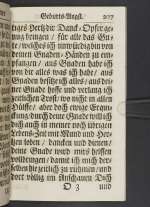 Geburts-Angst. 207
tiges Hertz dir Danck-Opffer ge-
nung bringen / für alle das Gu-
te / welches ich unwürdig von
deinen Gnaden-Händen zu em-
pfangen / aus Gnaden habe ich
von dir alles was ich habe / aus
Gnaden besitze ich alles / aus dei-
ner Gnade hoffe und verlang ich
zeitlichen Trost / wo nicht in allem
zeitlichen / aber doch ewige Erge-
tzung / durch deine Gnade will ich
dich auch in meiner noch übrigen
Lebens-Zeit mit Mund und Her-
tzen loben / dancken und deinen
deine Gnade wird mirs helffen
vollbringen / damit ich mich der-
selben hie zeitlich zu rühmen / und
dort völlig im Anschauen Dich
D 3 und